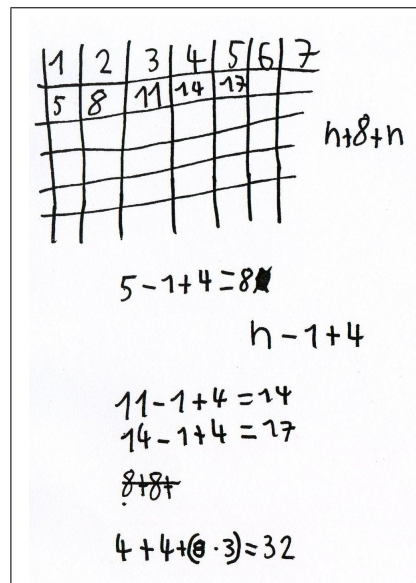 1 2 3 4 5 6 7
5 8 11 14 17
n+8+n
5-1+4=8
n-1+4
11-1+4=14
14-1+4=17
8+8+
4+4+(8·3)=32